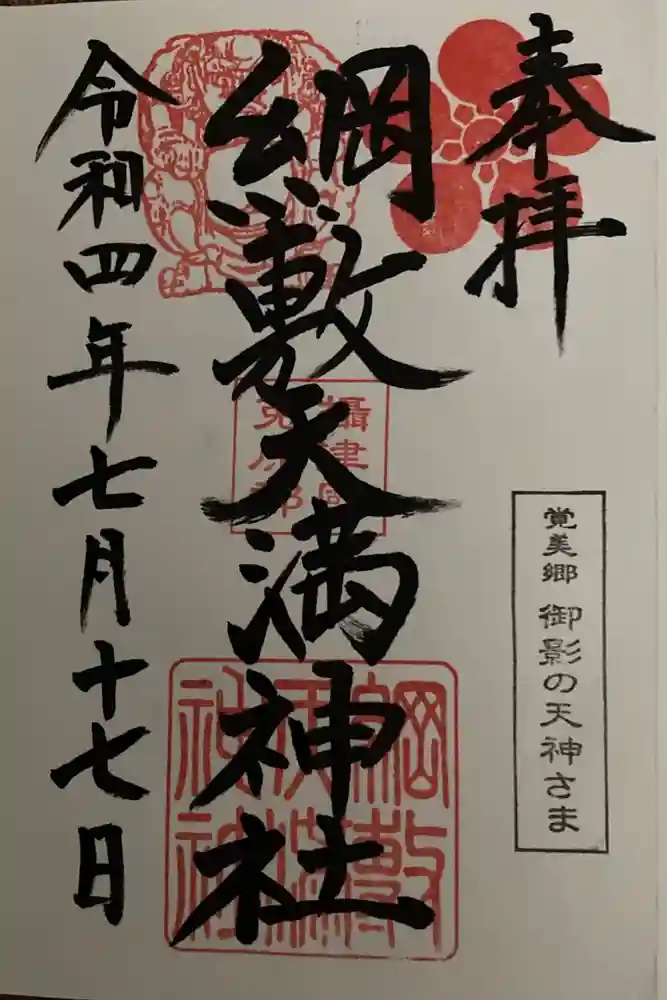 奉拝
覚美郷 御影の天神さま
綱敷天満神社
攝津國
菟原郡
綱敷
天満
神社
令和四年七月十七日